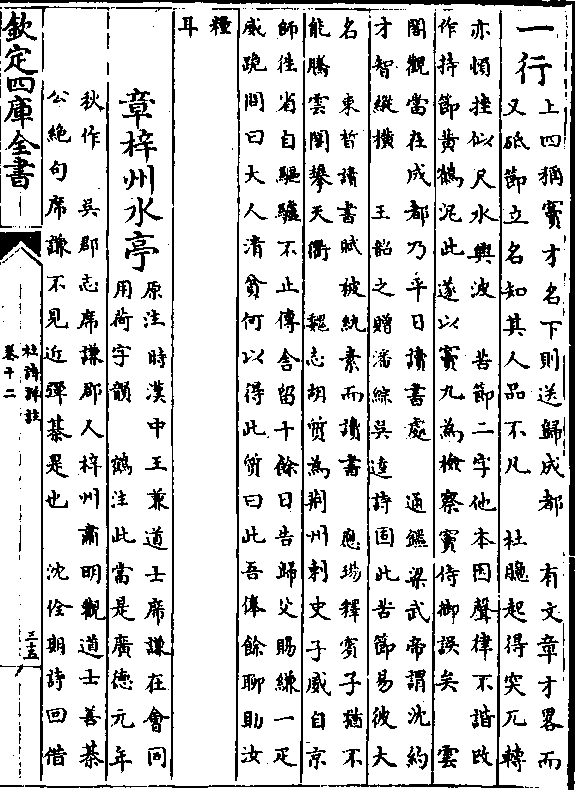 一行
上四稱竇才名下則送歸成都　有文章才畧而
又砥節立名知其人品不凡　杜臆起得突兀轉
亦頓挫似尺水興波　苦節二字他本因聲律不諧改
作持節黄鶴泥此遂以竇九為檢察竇侍御誤矣　雲
閣觀當在成都乃平日讀書處　通鑑梁武帝謂沈約
才智縱横　王韶之贈潘綜吳逵詩固此苦節易彼大
名　束晳讀書賦被紈素而讀書　應瑒釋賓子猶不
能騰雲閣攀天衢　魏志胡質為荆州刺史子威自京
師往省自驅驢不止傳舍留十餘日告歸父賜縑一疋
威跪問曰大人清貧何以得此質曰此吾俸餘聊助汝
糧
耳
章梓州水亭
原注時漢中王兼道士席謙在會同
用荷字韻　鶴注此當是廣德元年
秋作　吳郡志席謙郡人梓州肅明觀道士善棊
公絶句席謙不見近彈棊是也　沈佺期詩回借
欽定四庫全書
杜詩詳註
卷十二
三五